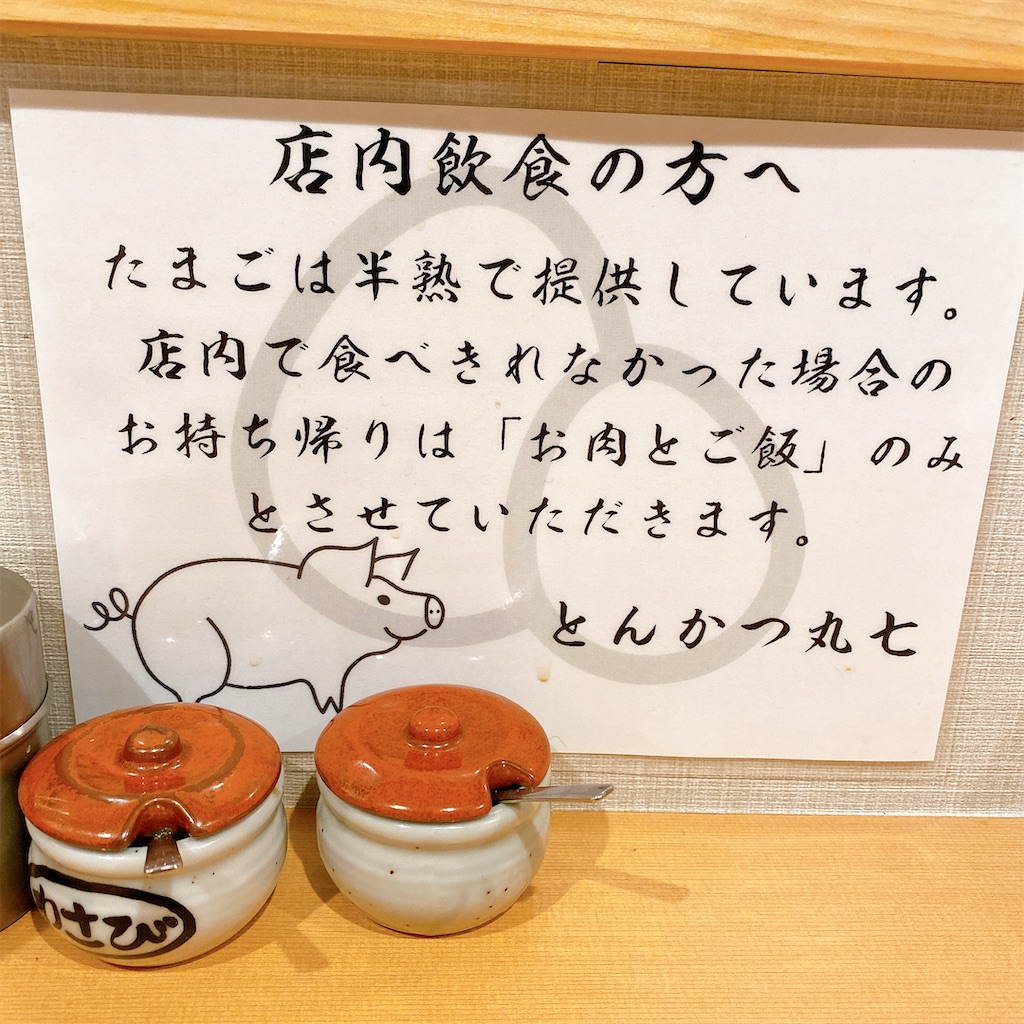 店内飲食の方へ
たまごは半熟で提供しています。
店内で食べきれなかった場合の
お持ち帰りは「お肉とご飯」のみ
とさせていただきます。
とんかつ丸七
わさび